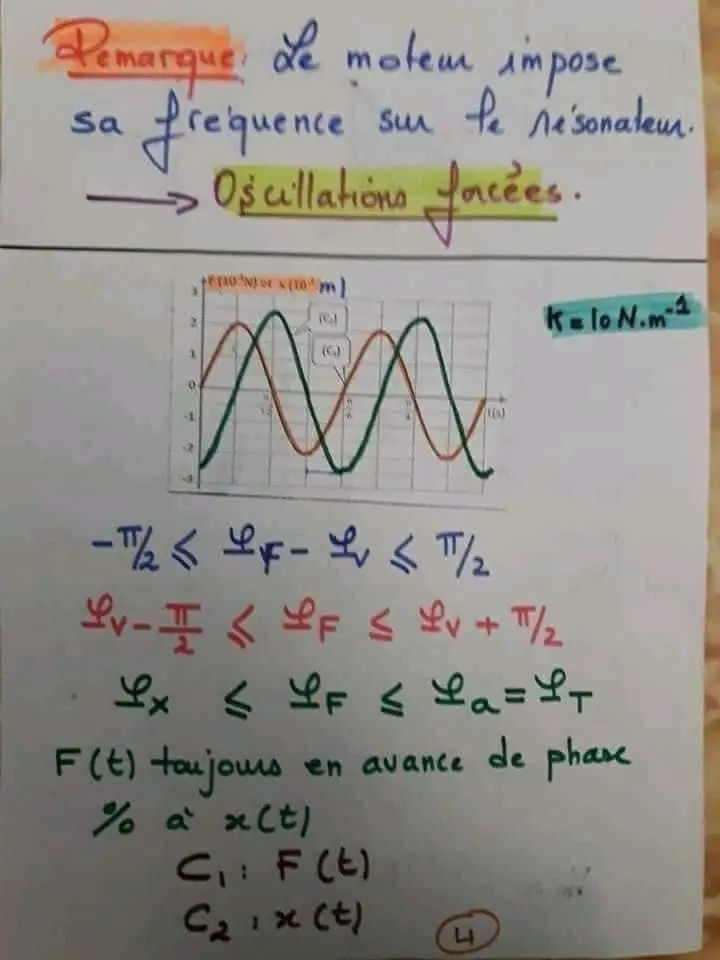 Remarque: Le moteur impose
sa fréquence sur le résonateur.
→ Oscillations forcées.
m)
K = 10 N.m⁻¹
3
2
1
0
-1
-2
-3
t(s)
-π/2 ≤ φF - φv ≤ π/2
φv - π/2 ≤ φF ≤ φv + π/2
φx ≤ φF ≤ φa = φT
F(t) toujours en avance de phase
% à x(t)
C₁ : F(t)
C₂ : x(t)
4